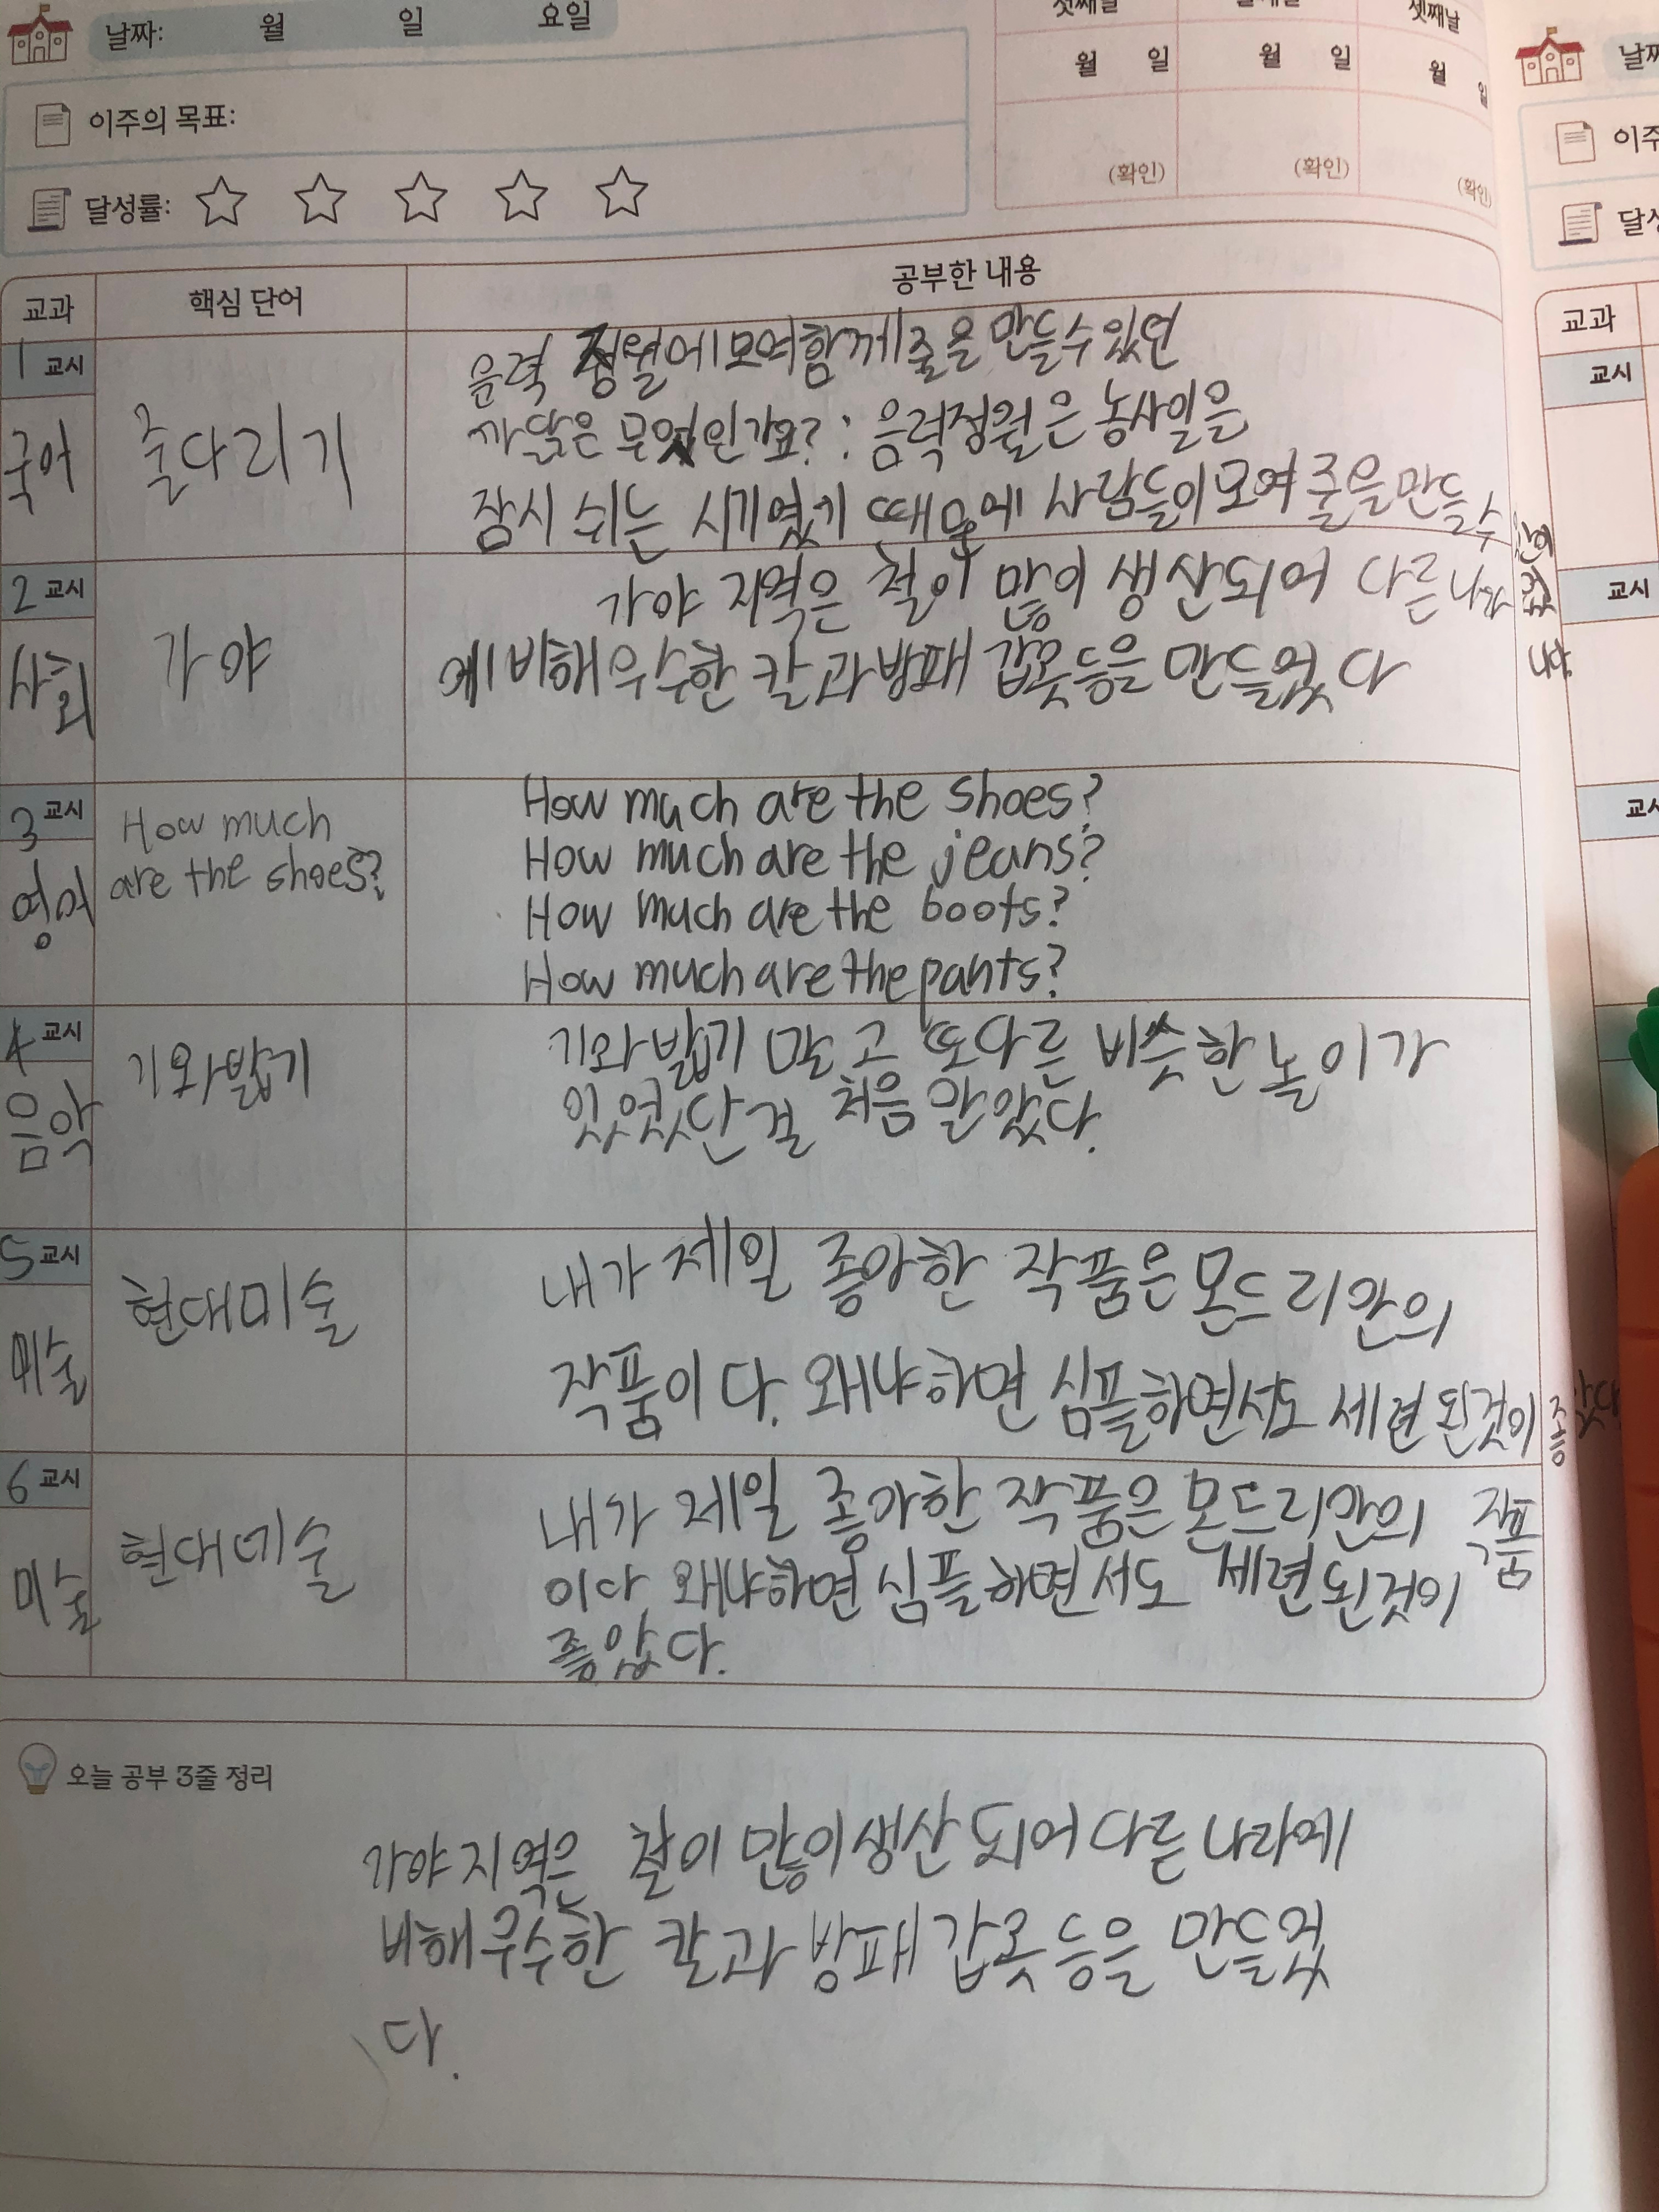 날짜: 월 일 요일
이주의 목표:
달성률:
첫째날 셋째날
월 일 월 일 월 일
(확인) (확인) (확인)
교과 핵심 단어 공부한 내용
1 교시
국어
줄다리기
음력 정월에 모여 함께 줄을 만들 수 있던
까닭은 무엇인가요? : 음력정월은 농사일을
잠시 쉬는 시기였기 때문에 사람들이 모여 줄을 만들 수
2 교시
사회
가야
가야 지역은 철이 많이 생산되어 다른 나라
에 비해 우수한 칼과 방패 갑옷 등을 만들었다
3 교시
영어
How much
are the shoes?
How much are the shoes?
How much are the jeans?
How much are the boots?
How much are the pants?
4 교시
음악
기와밟기
기와밟기 말고 또다른 비슷한 놀이가
있었단걸 처음 알았다.
5 교시
미술
현대미술
내가 제일 좋아한 작품은 몬드리안의
작품이다. 왜냐하면 심플하면서도 세련된것이 좋았다
6 교시
미술
현대미술
내가 제일 좋아한 작품은 몬드리안의 작품
이다 왜냐하면 심플하면서도 세련된것이
좋았다.
오늘 공부 3줄 정리
가야 지역은 철이 많이 생산 되어 다른 나라에
비해 우수한 칼과 방패 갑옷 등을 만들었
다.
날짜
이주
달성
교과
교시
교시
교시